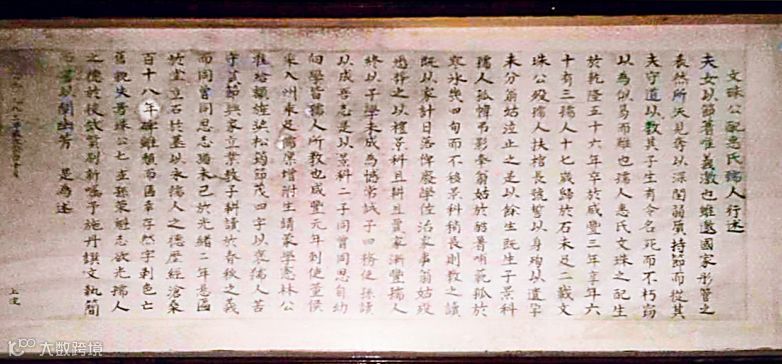 文珠公配惠氏孺人行述
夫女以節著唯義激也雖邀國家彤管之
表然所天見奪以深閨弱質持節而從其
夫守道以教其子生有令名死而不朽竊
以為似易而難也孺人惠氏文珠之配生
於乾隆五十六年卒於咸豐三年享年六
十有三孺人十七歲歸於石未足二載文
珠公歿孺人扶棺長號誓以身殉以遺孕
未分翁姑泣止之是以餘生既生子景科
孺人孤幃弔影奉翁姑於躬著哺範孤於
寒冰幾四旬而不移景科稍長則教之讀
既以家計日落俾廢學佐治家事翁姑歿
過葬之以禮景科且耕且賈家漸豐孺人
終以子學未成為憾常誡子曰務使孫讀
以成吾志是以景科二子同曾同思自幼
向學皆孺人所教也咸豐元年刺使董候
采入州乘足儒原增附生請蒙學憲林公
准給額旌柒松筠節茂四字以褒孺人苦
守貞節興家立業教子耕讀於春秋之義
而同曾同思志猶未已於光緒二年懸匾
於堂立石於墓以永孺人之德歷經滄桑
百十八年碑雖損而匾幸存然字剝色亡
舊觀失焉珠公七世孫策敝志欲光孺人
之德於後歲囊刷新囑予施丹撰文執簡
書以闡幽芳 是為述
上浣
大数跨境